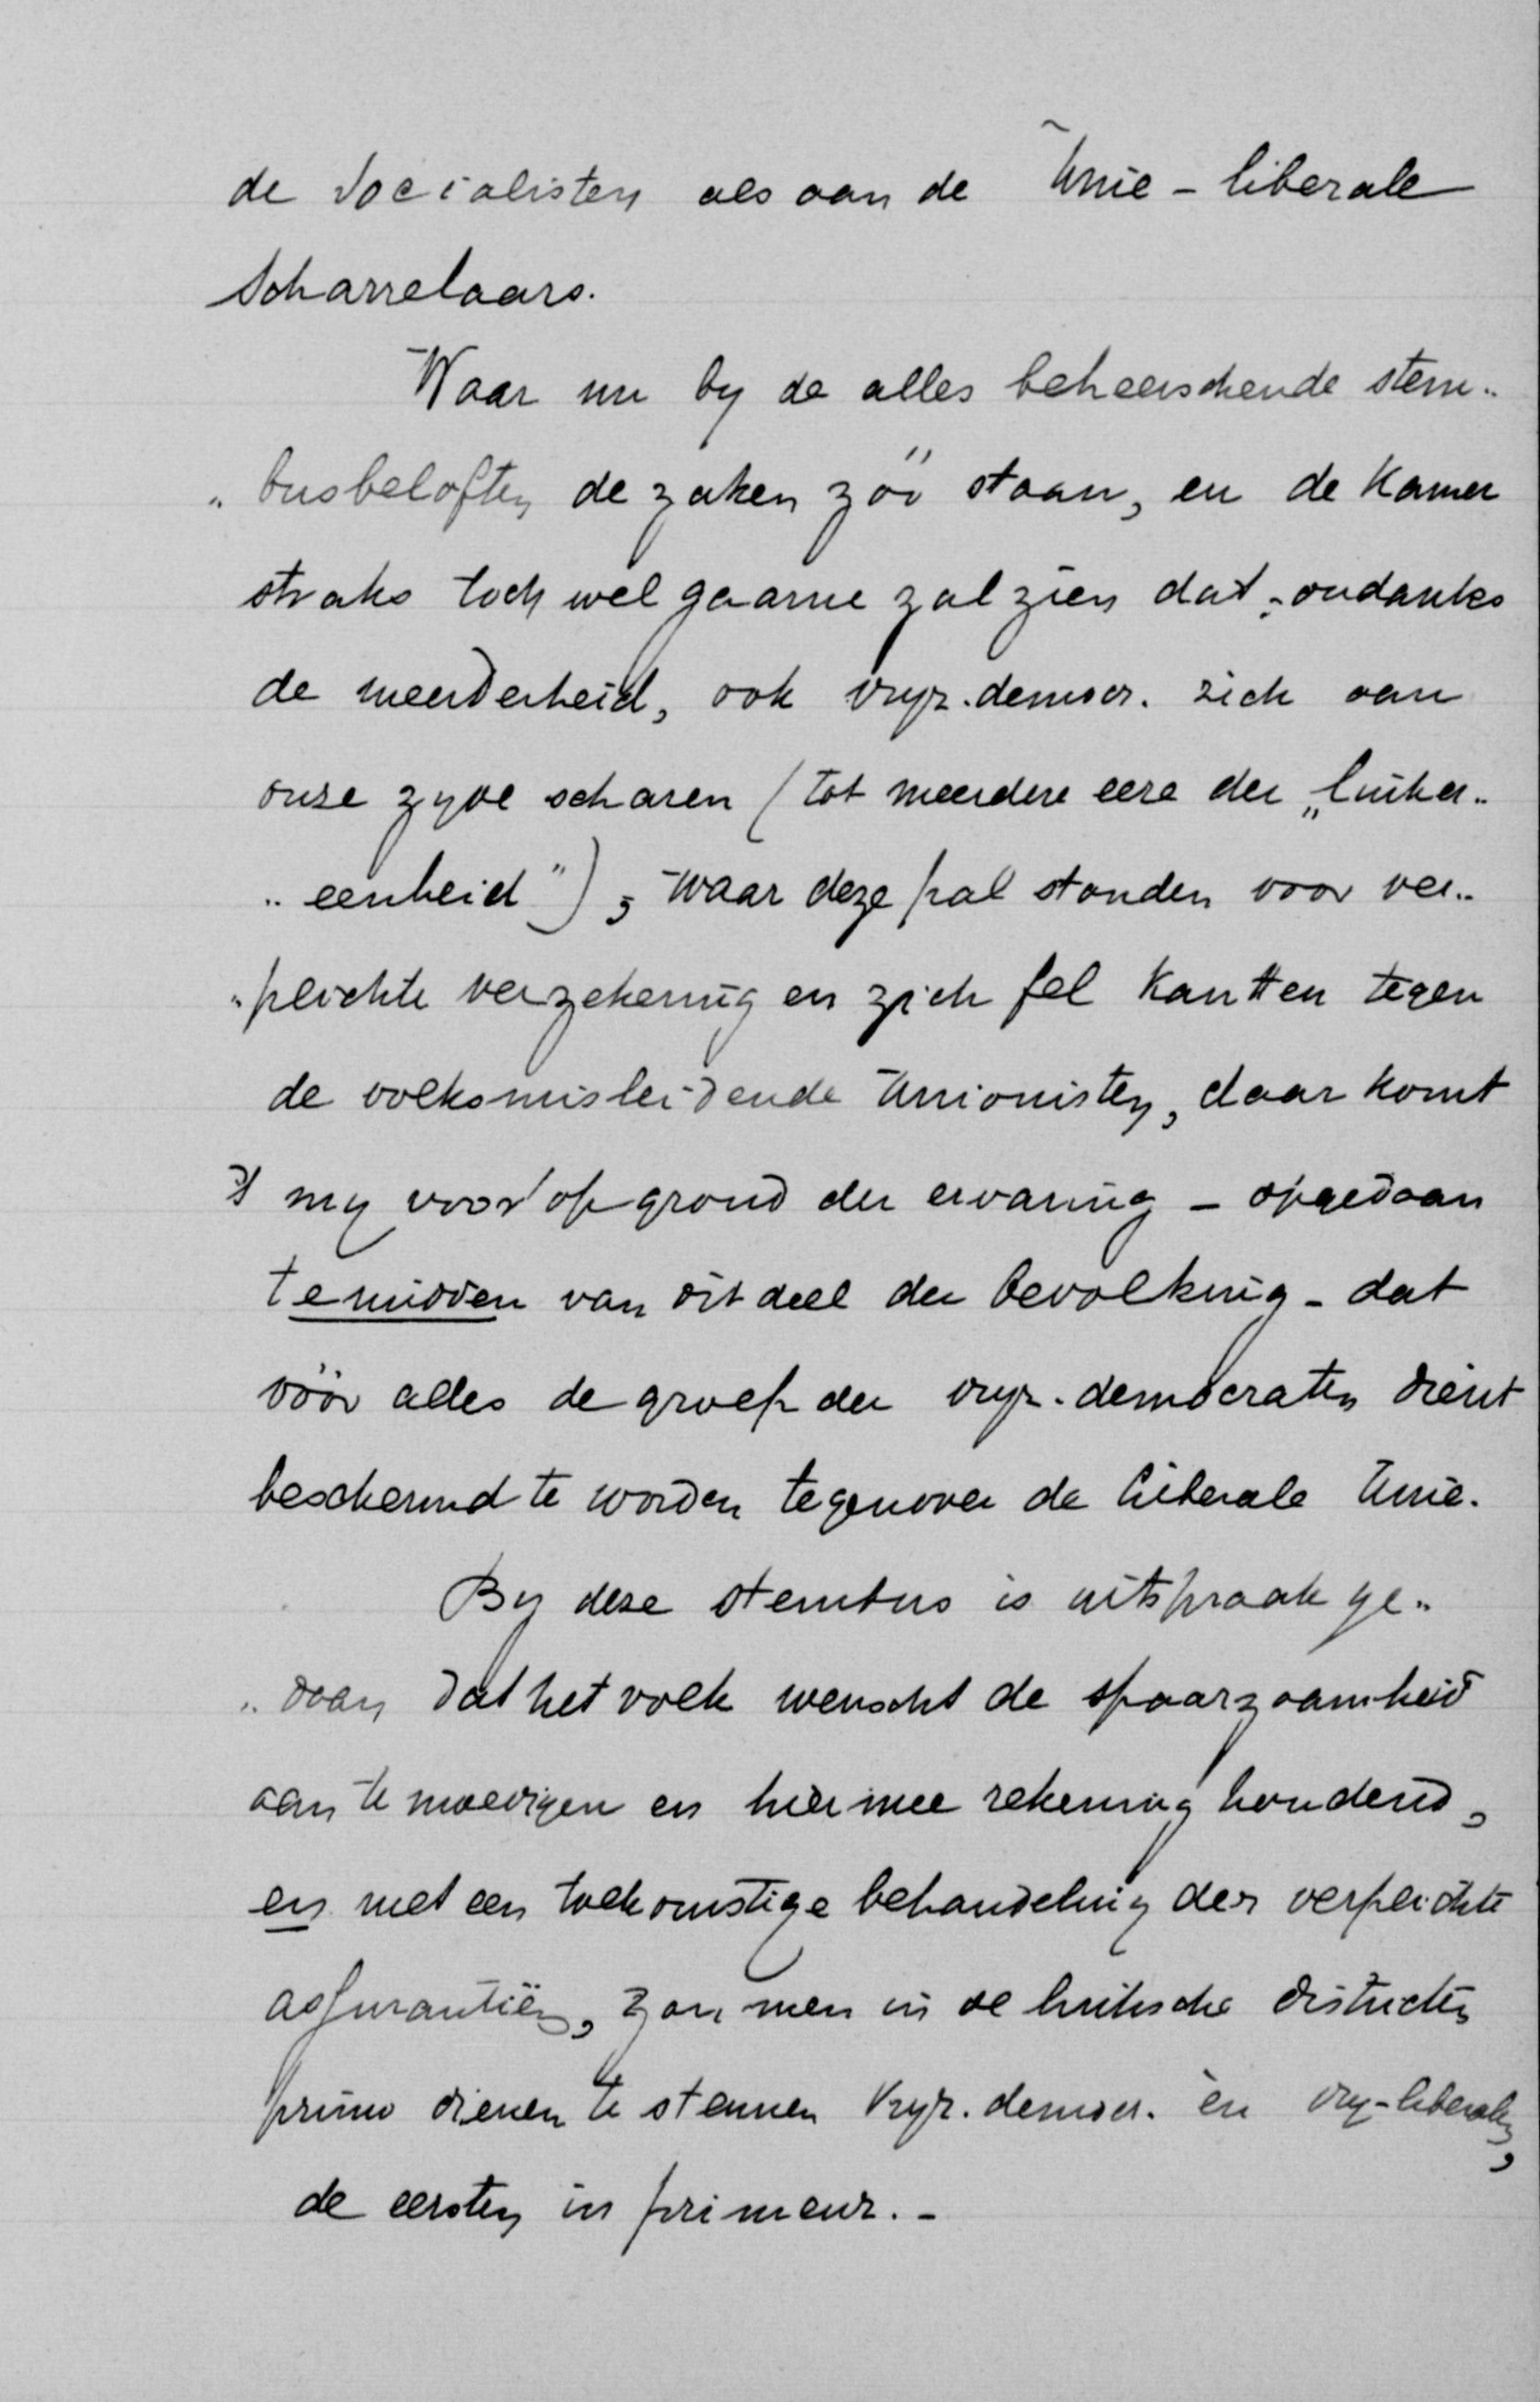 de Socialisten als aan de Unie-liberale
Scharrelaars.
Waar nu by de alles beheerschende stem„
„busbeloften de zaken zóó staan, en de Kamer
straks toch wel gaarne zal zien dat, ondanks
de meerderheid, ook vryz. democr. zich aan
onze zyde scharen (tot meerdere eere der „linker„
„eenheid"), waar deze pal stonden voor ver„
„plichte verzekering en zich fel kantten tegen
de volksmisleidende Unionisten, daar komt
't my voor op grond der ervaring – opgedaan
temidden van dit deel der bevolking – dat
vóór alles de groep der vryz. democraten dient
beschermd te worden tegenover de Liberale Unie.
By deze stembus is uitspraak ge„
„daan dat het volk wenscht de spaarzaamheid
aan te moedigen en hiermee rekening houdend,
en met een toekomstige behandeling der verplichte
assurantiën, zou men in de kritische districten
primo dienen te steunen vryz. democr. èn vry-liberalen,
de eersten in primeur. –